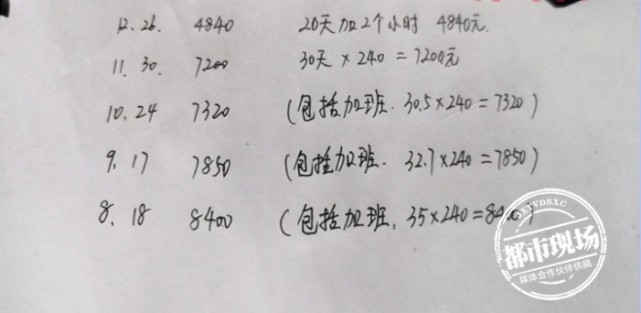 12.26. 4840 20天加2个小时 4840元.
11.30. 7200 30天×240=7200元
10.24 7320 (包括加班.30.5×240=7320)
9.17 7850 (包括加班. 32.7×240=7850)
8.18 8400 (包括加班, 35×240=8400)
DSXC
都市现场
媒体合作伙伴供稿